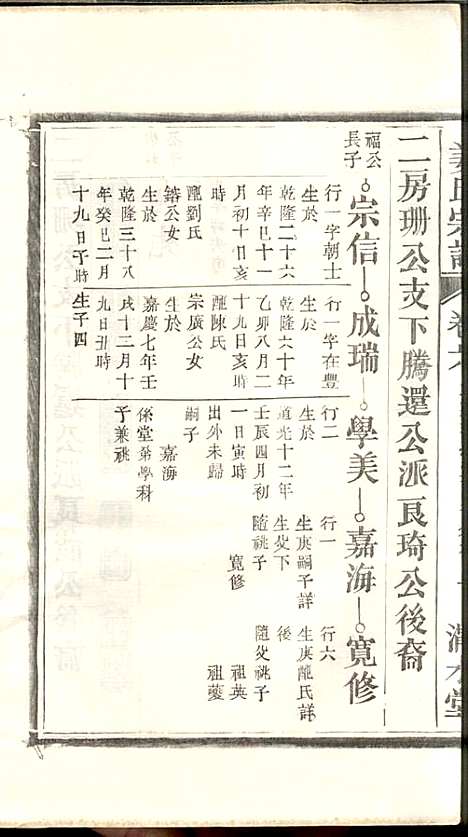 氏宗譜 卷
二房珊公支下騰還公派良琦公後裔
福公
長子
宗信 成瑞 學美 嘉海 寬修
行一字朝士
生於
乾隆二十六
年辛巳十一
月初十日亥
時
配劉氏
鎔公女
生於
乾隆三十八
年癸巳二月
十九日子時
生子四
行一字在豐
生於
乾隆六十年
乙卯八月二
十九日亥時
配陳氏
宗廣公女
生於
嘉慶七年壬
戌十二月十
九日丑時
行二
生於
道光十二年
壬辰四月初
一日寅時
出外未歸
嗣子
嘉海
係堂弟學科
子兼祧
行一
生庚嗣子詳
生父下
隨祧子
寬修
行六
生庚配氏詳
後
隨父祧子
祖英
祖夔